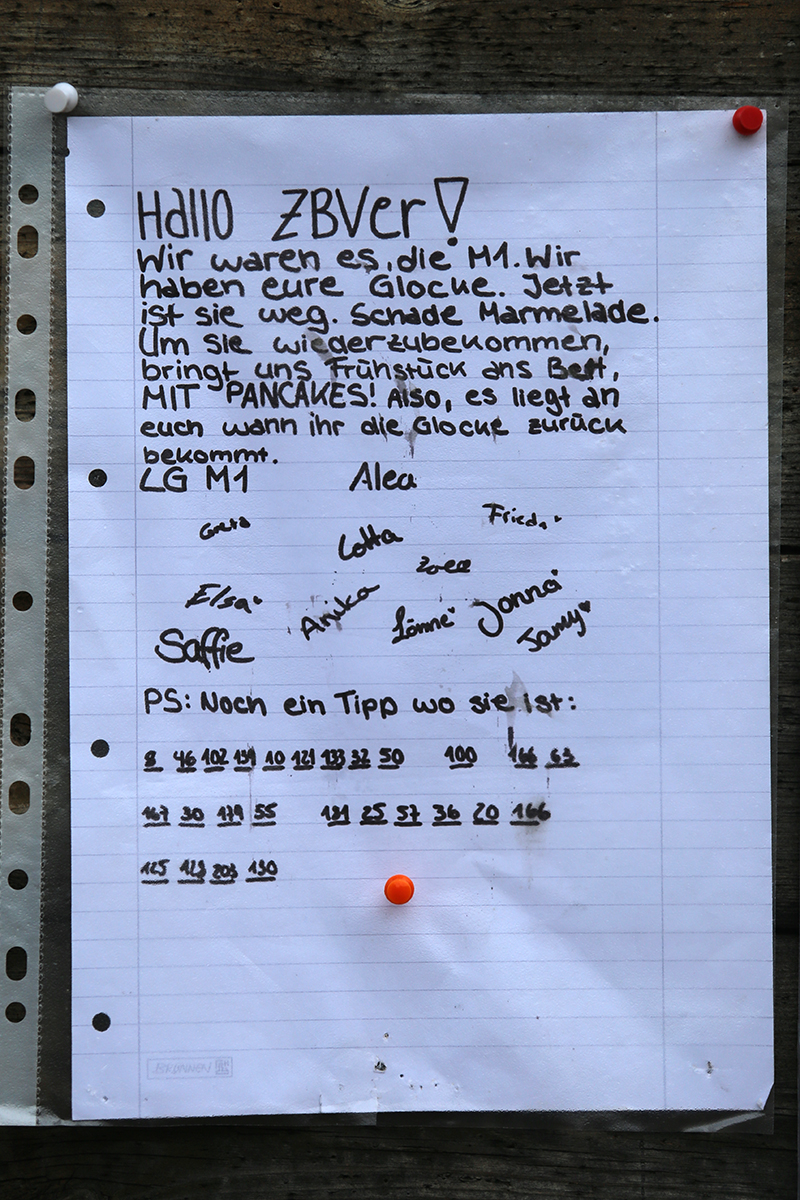 Hallo ZBVer!
Wir waren es, die M1. Wir
haben eure Glocke. Jetzt
ist sie weg. Schade Marmelade.
Um sie wiederzubekommen,
bringt uns Frühstück ans Bett,
MIT PANCAKES! Also, es liegt an
euch wann ihr die Glocke zurück
bekommt.
LG M1 Alea
Greta Frieda
Lotta
Elsa Anika Jonna
Saffie
PS: Noch ein Tipp wo sie ist:
8 46 102 151 10 121 133 32 50 100 166 63
167 30 179 55 25 57 36 20 166
125 203 190
BRUNNEN